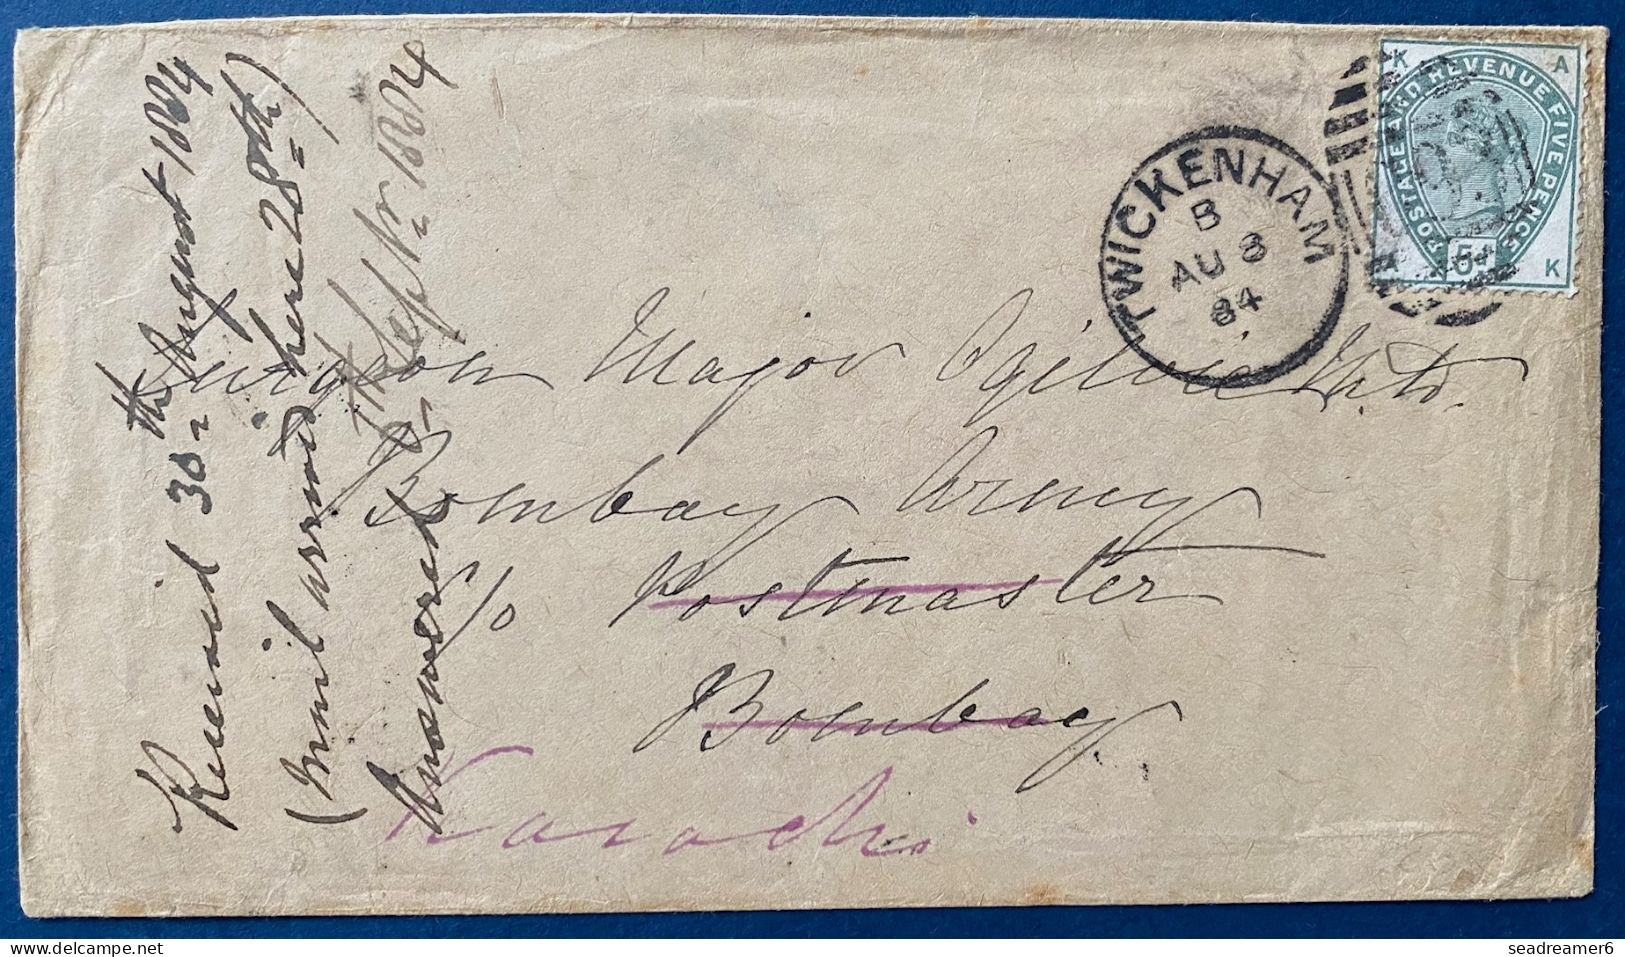 Received 30th August 1884
(mail arrived here 28th)
Answered 5th Septr 1884
TWICKENHAM
B
AU 8
84
K A
POSTAGE AND REVENUE FIVE PENCE
5d
A K
Surgeon Major Ogilvie M.D.
Bombay Army
c/o Postmaster
Bombay
Karachi
seadreamer6